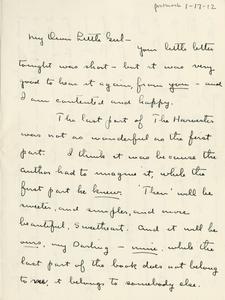 postmark 1-17-12
My Own Little Girl—
Your little letter
tonight was short — but it was very
good to hear it again, from you — and
I am contented and happy.
The last part of The Harvester
was not as wonderful as the first
part. I think it was because the
author had to imagine it, while the
first part he knew. 'Then' will be
sweeter, and simpler, and more
beautiful, Sweetheart. And it will be
ours, my Darling — mine, while the
last part of the book does not belong
to me, it belongs to somebody else.